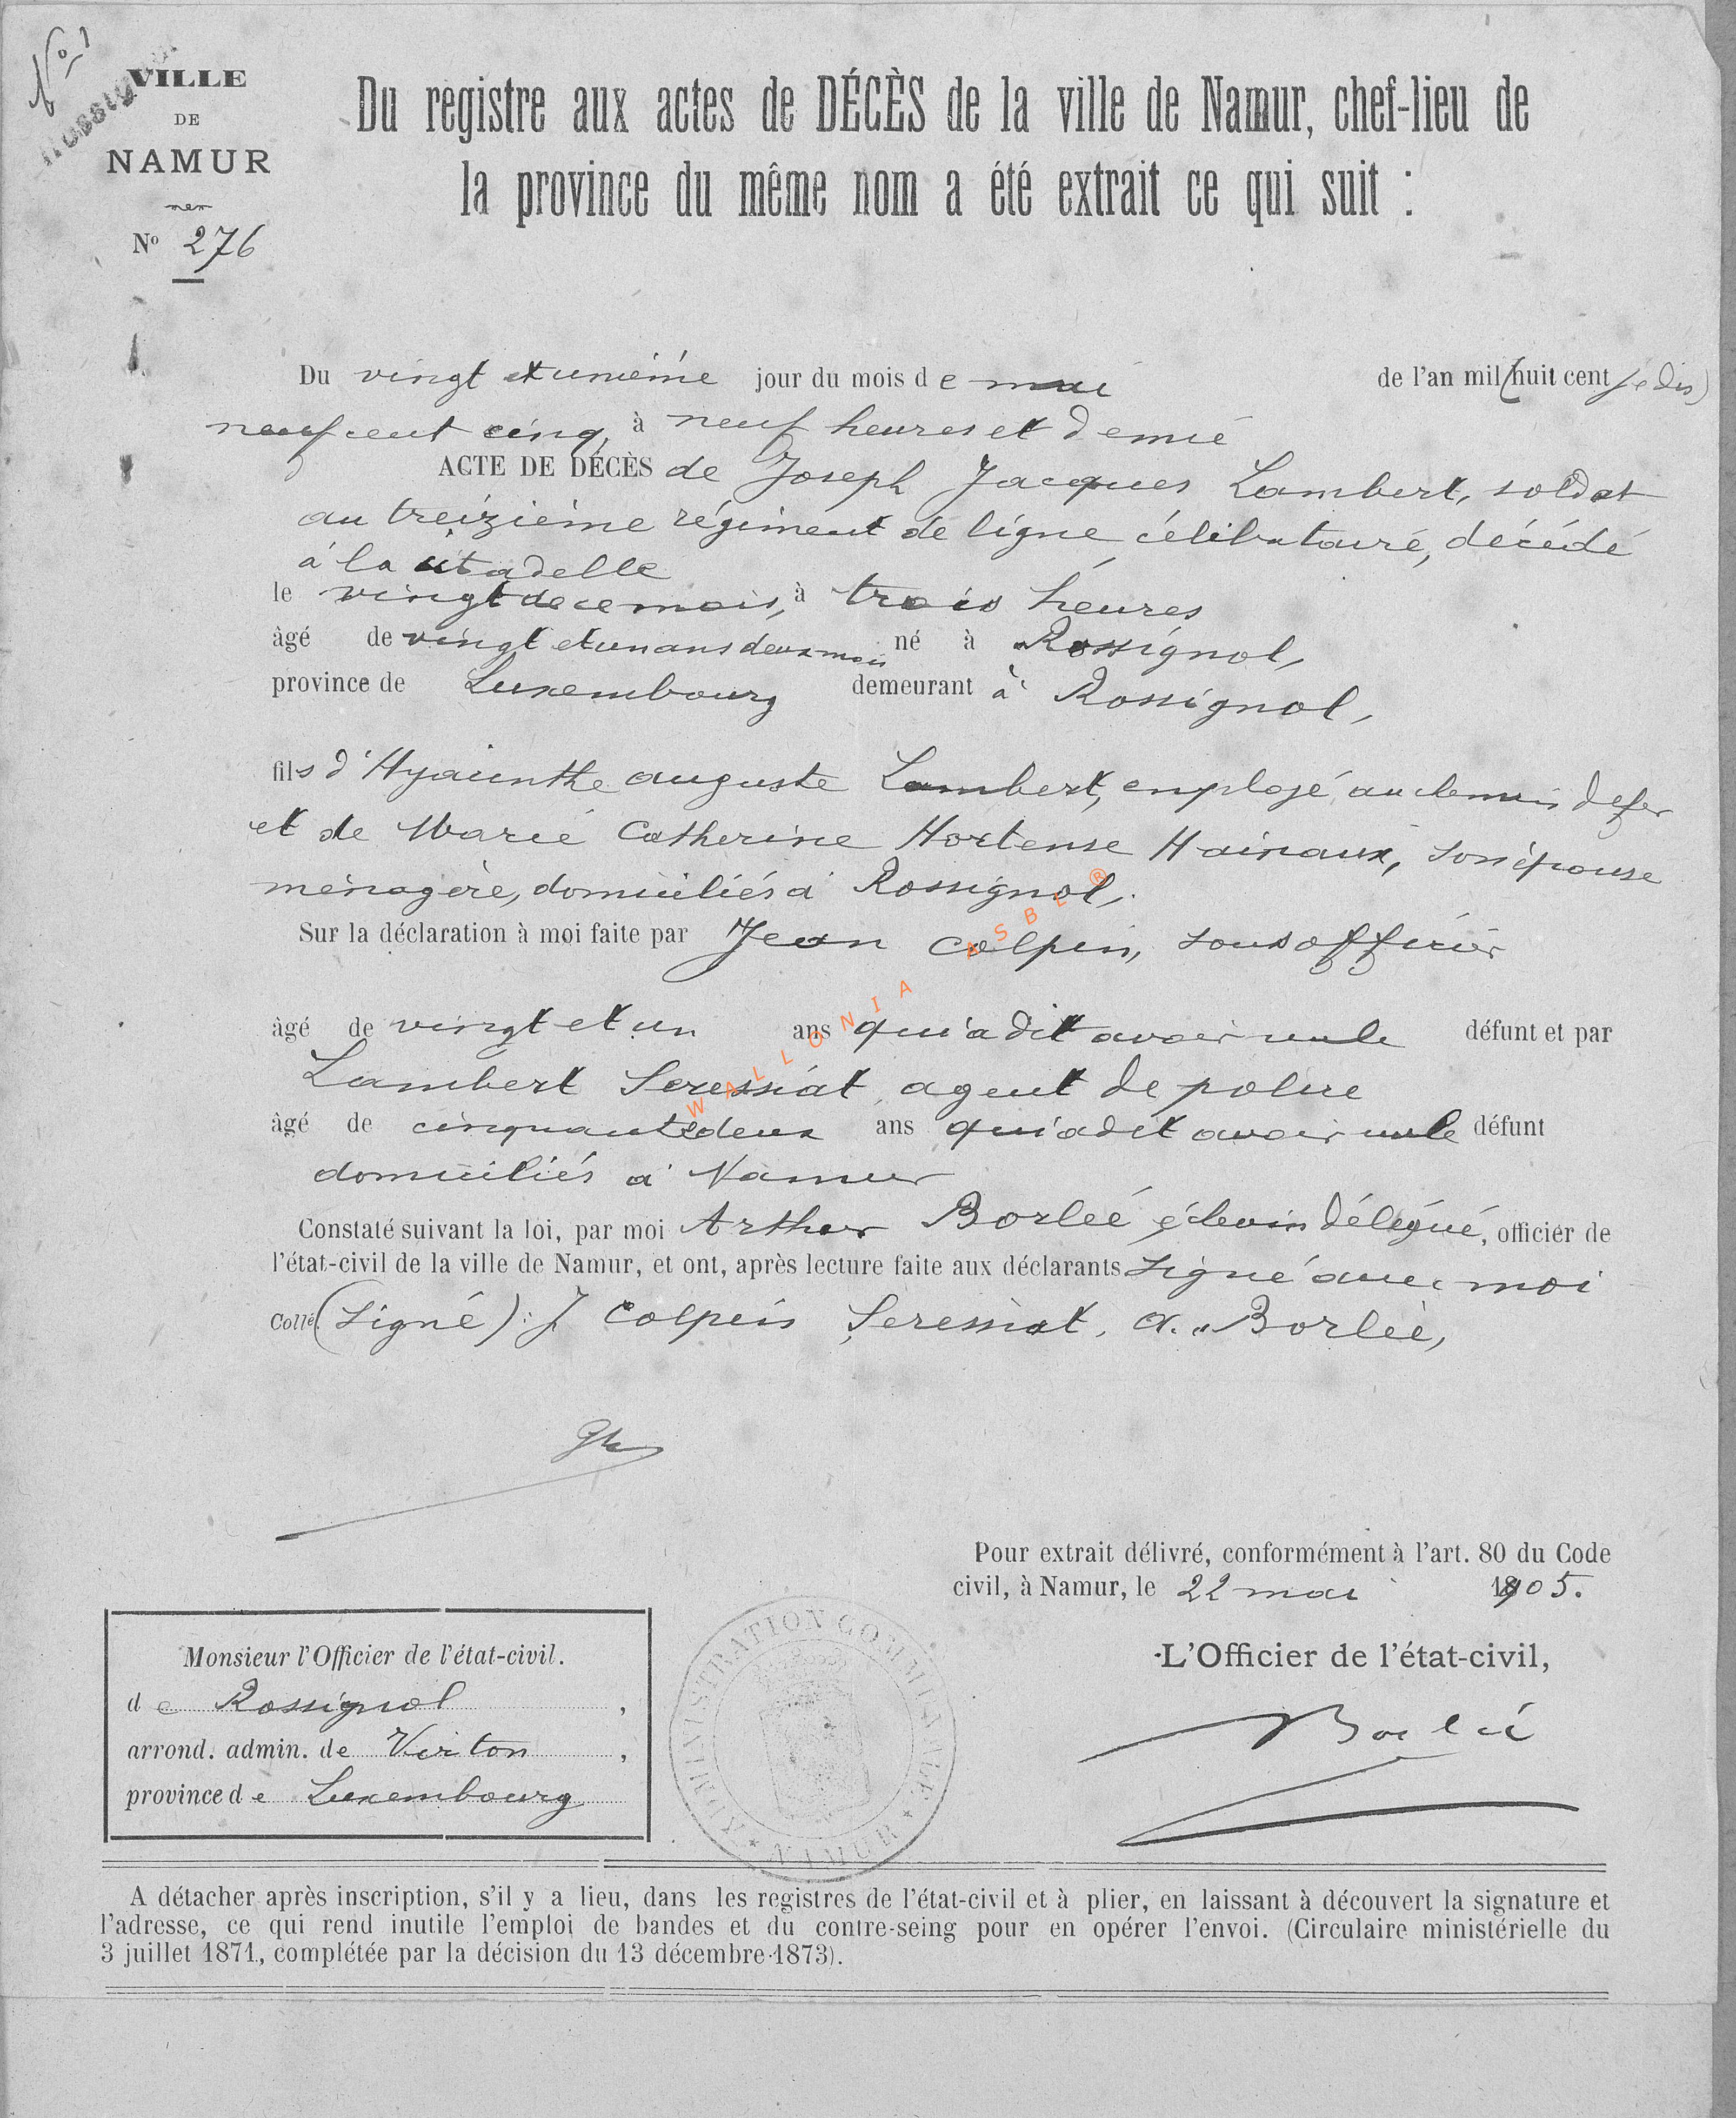 No 1
Rossignol
VILLE
DE
NAMUR
No 276
Du registre aux actes de DÉCÈS de la ville de Namur, chef-lieu de
la province du même nom a été extrait ce qui suit :
Du vingt et unième jour du mois de mai de l'an mil (huit cent je dis)
neuf cent cinq, à neuf heures et demie
ACTE DE DÉCÈS de Joseph Jacques Lambert, soldat
au treizième régiment de ligne célibataire, décédé
à la citadelle
le vingt de ce mois, à trois heures
âgé de vingt et un ans deux mois né à Rossignol,
province de Luxembourg demeurant à Rossignol,
fils d'Hyacinthe auguste Lambert, employé au chemin de fer
et de Marie Catherine Hortense Hainaux, son épouse
ménagère, domiciliés à Rossignol,
Sur la déclaration à moi faite par Jean Colpin, sous officier
âgé de vingt et un ans qui a dit avoir vu le défunt et par
Lambert Seressiat, agent de police
âgé de cinquante deux ans qui a dit avoir vu le défunt
domiciliés à Namur
Constaté suivant la loi, par moi Arthur Borleé échevin délégué, officier de
l'état-civil de la ville de Namur, et ont, après lecture faite aux déclarants signé avec moi
Collé (Signé) : J Colpin Seressiat, A. Borlée,
Pour extrait délivré, conformément à l'art. 80 du Code
civil, à Namur, le 22 mai 1905.
L'Officier de l'état-civil,
Borleé
Monsieur l'Officier de l'état-civil.
de Rossignol,
arrond. admin. de Virton,
province de Luxembourg
ADMINISTRATION COMMUNALE * NAMUR *
A détacher après inscription, s'il y a lieu, dans les registres de l'état-civil et à plier, en laissant à découvert la signature et
l'adresse, ce qui rend inutile l'emploi de bandes et du contre-seing pour en opérer l'envoi. (Circulaire ministérielle du
3 juillet 1871, complétée par la décision du 13 décembre 1873).
WALLONIA ASBL ®